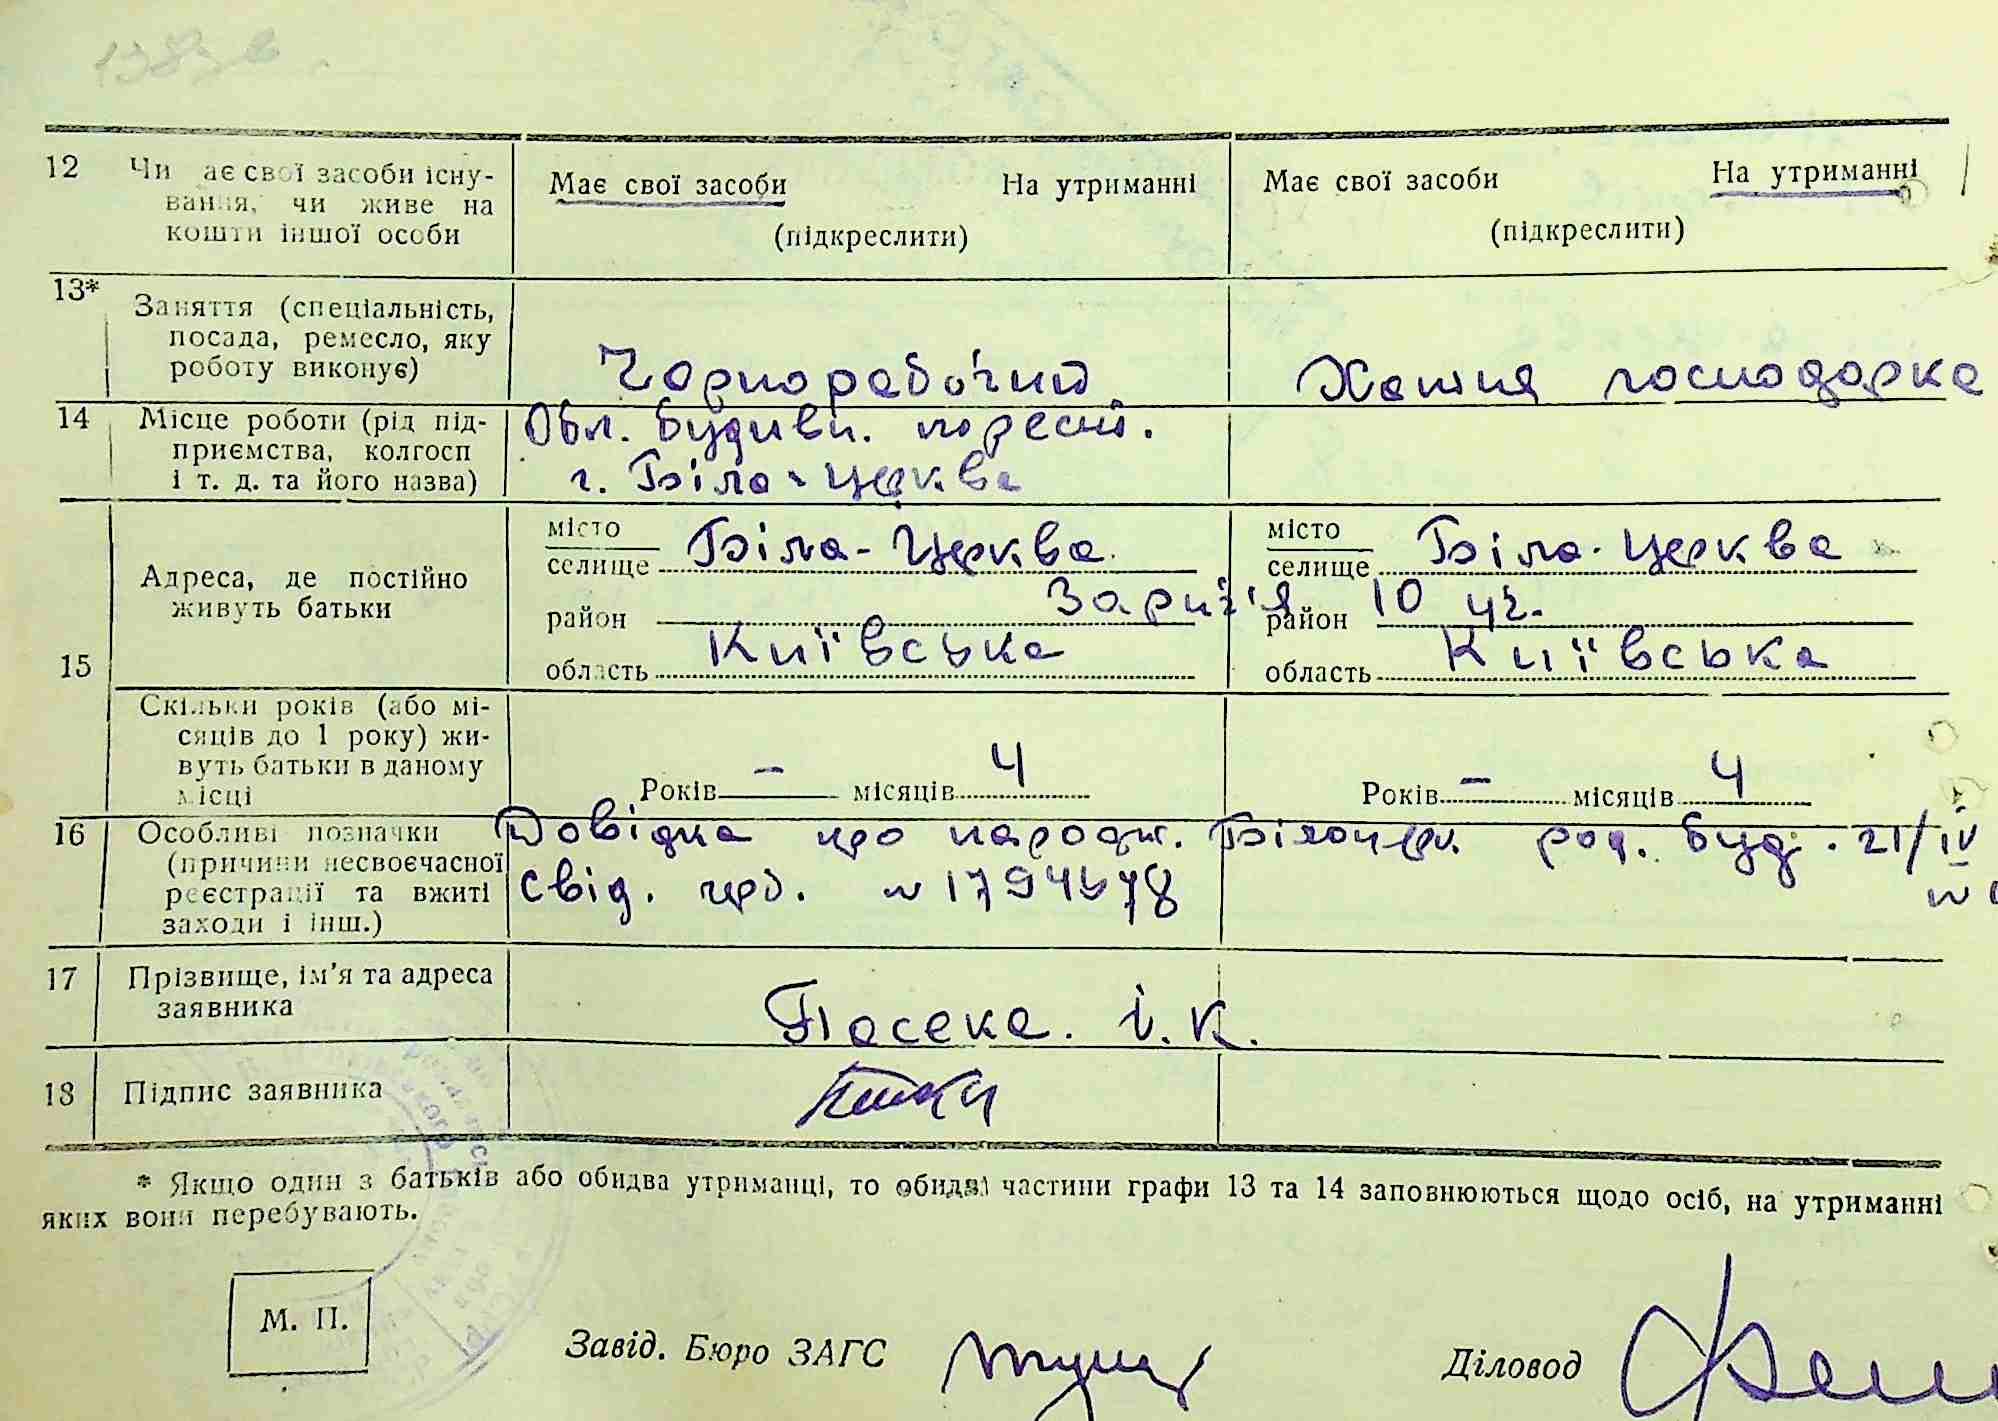 12 Чи ає свої засоби існу- Має свої засоби На утриманні Має свої засоби На утриманні
вання, чи живе на
кошти іншої особи (підкреслити) (підкреслити)
13* Заняття (спеціальність,
посада, ремесло, яку
роботу виконує) Чорнорабочий Хатня господарка
14 Місце роботи (рід під- Обл. будивн.
приємства, колгосп
і т. д. та його назва) г. Біла-Церква
15 Адреса, де постійно
живуть батьки
місто Біла-Церква місто Біла-Церква
селище селище
район район 10 уч.
область Київська область Київська
Скільки років (або мі-
сяців до 1 року) жи-
вуть батьки в даному
місці Років – місяців 4 Років – місяців 4
16 Особливі позначки Довідка про народж. Білоцерк. род. буд. 21/IV
(причини несвоєчасної
реєстрації та вжиті свід. шлб. №
заходи і інш.)
17 Прізвище, ім'я та адреса
заявника Пасека. І. К.
18 Підпис заявника
* Якщо один з батьків або обидва утриманці, то обидві частини графи 13 та 14 заповнюються щодо осіб, на утриманні
яких вони перебувають.
М. П.
Завід. Бюро ЗАГС Діловод